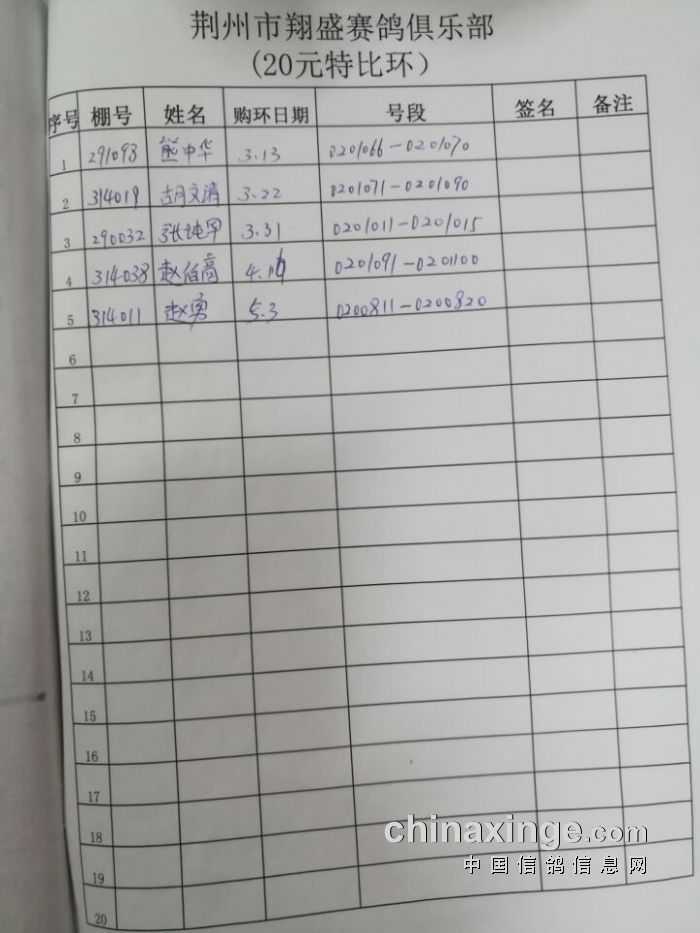 荆州市翔盛赛鸽俱乐部
(20元特比环)
序号 棚号 姓名 购环日期 号段 签名 备注
1 291093 熊中华 3.13 0201066-0201070
2 314019 胡文清 3.22 0201071-0201090
3 290032 3.31 0201011-0201015
4 314038 赵伯高 0201091-0201100
5 314011 赵勇 5.3 0200811-0200820
6
7
8
9
10
11
12
13
14
15
16
17
18
19
20
chinaxinge.com
中国信鸽信息网